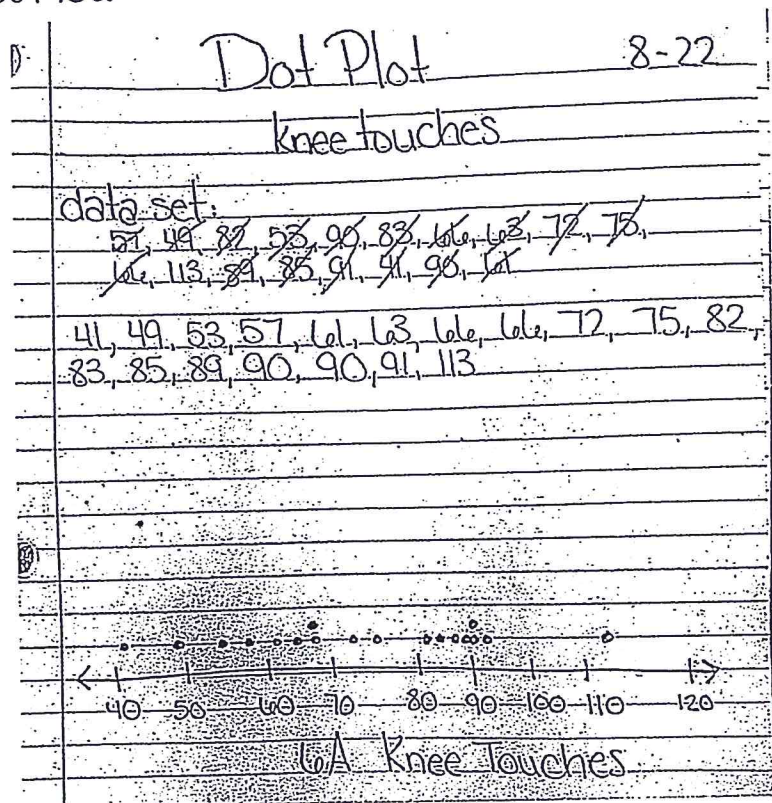 Dot Plot 8-22
knee touches
data set:
57, 49, 82, 53, 90, 83, 66, 63, 72, 75,
66, 113, 89, 85, 91, 41, 90, 61
41, 49, 53, 57, 61, 63, 66, 66, 72, 75, 82,
83, 85, 89, 90, 90, 91, 113
40 50 60 70 80 90 100 110 120
6A Knee Touches